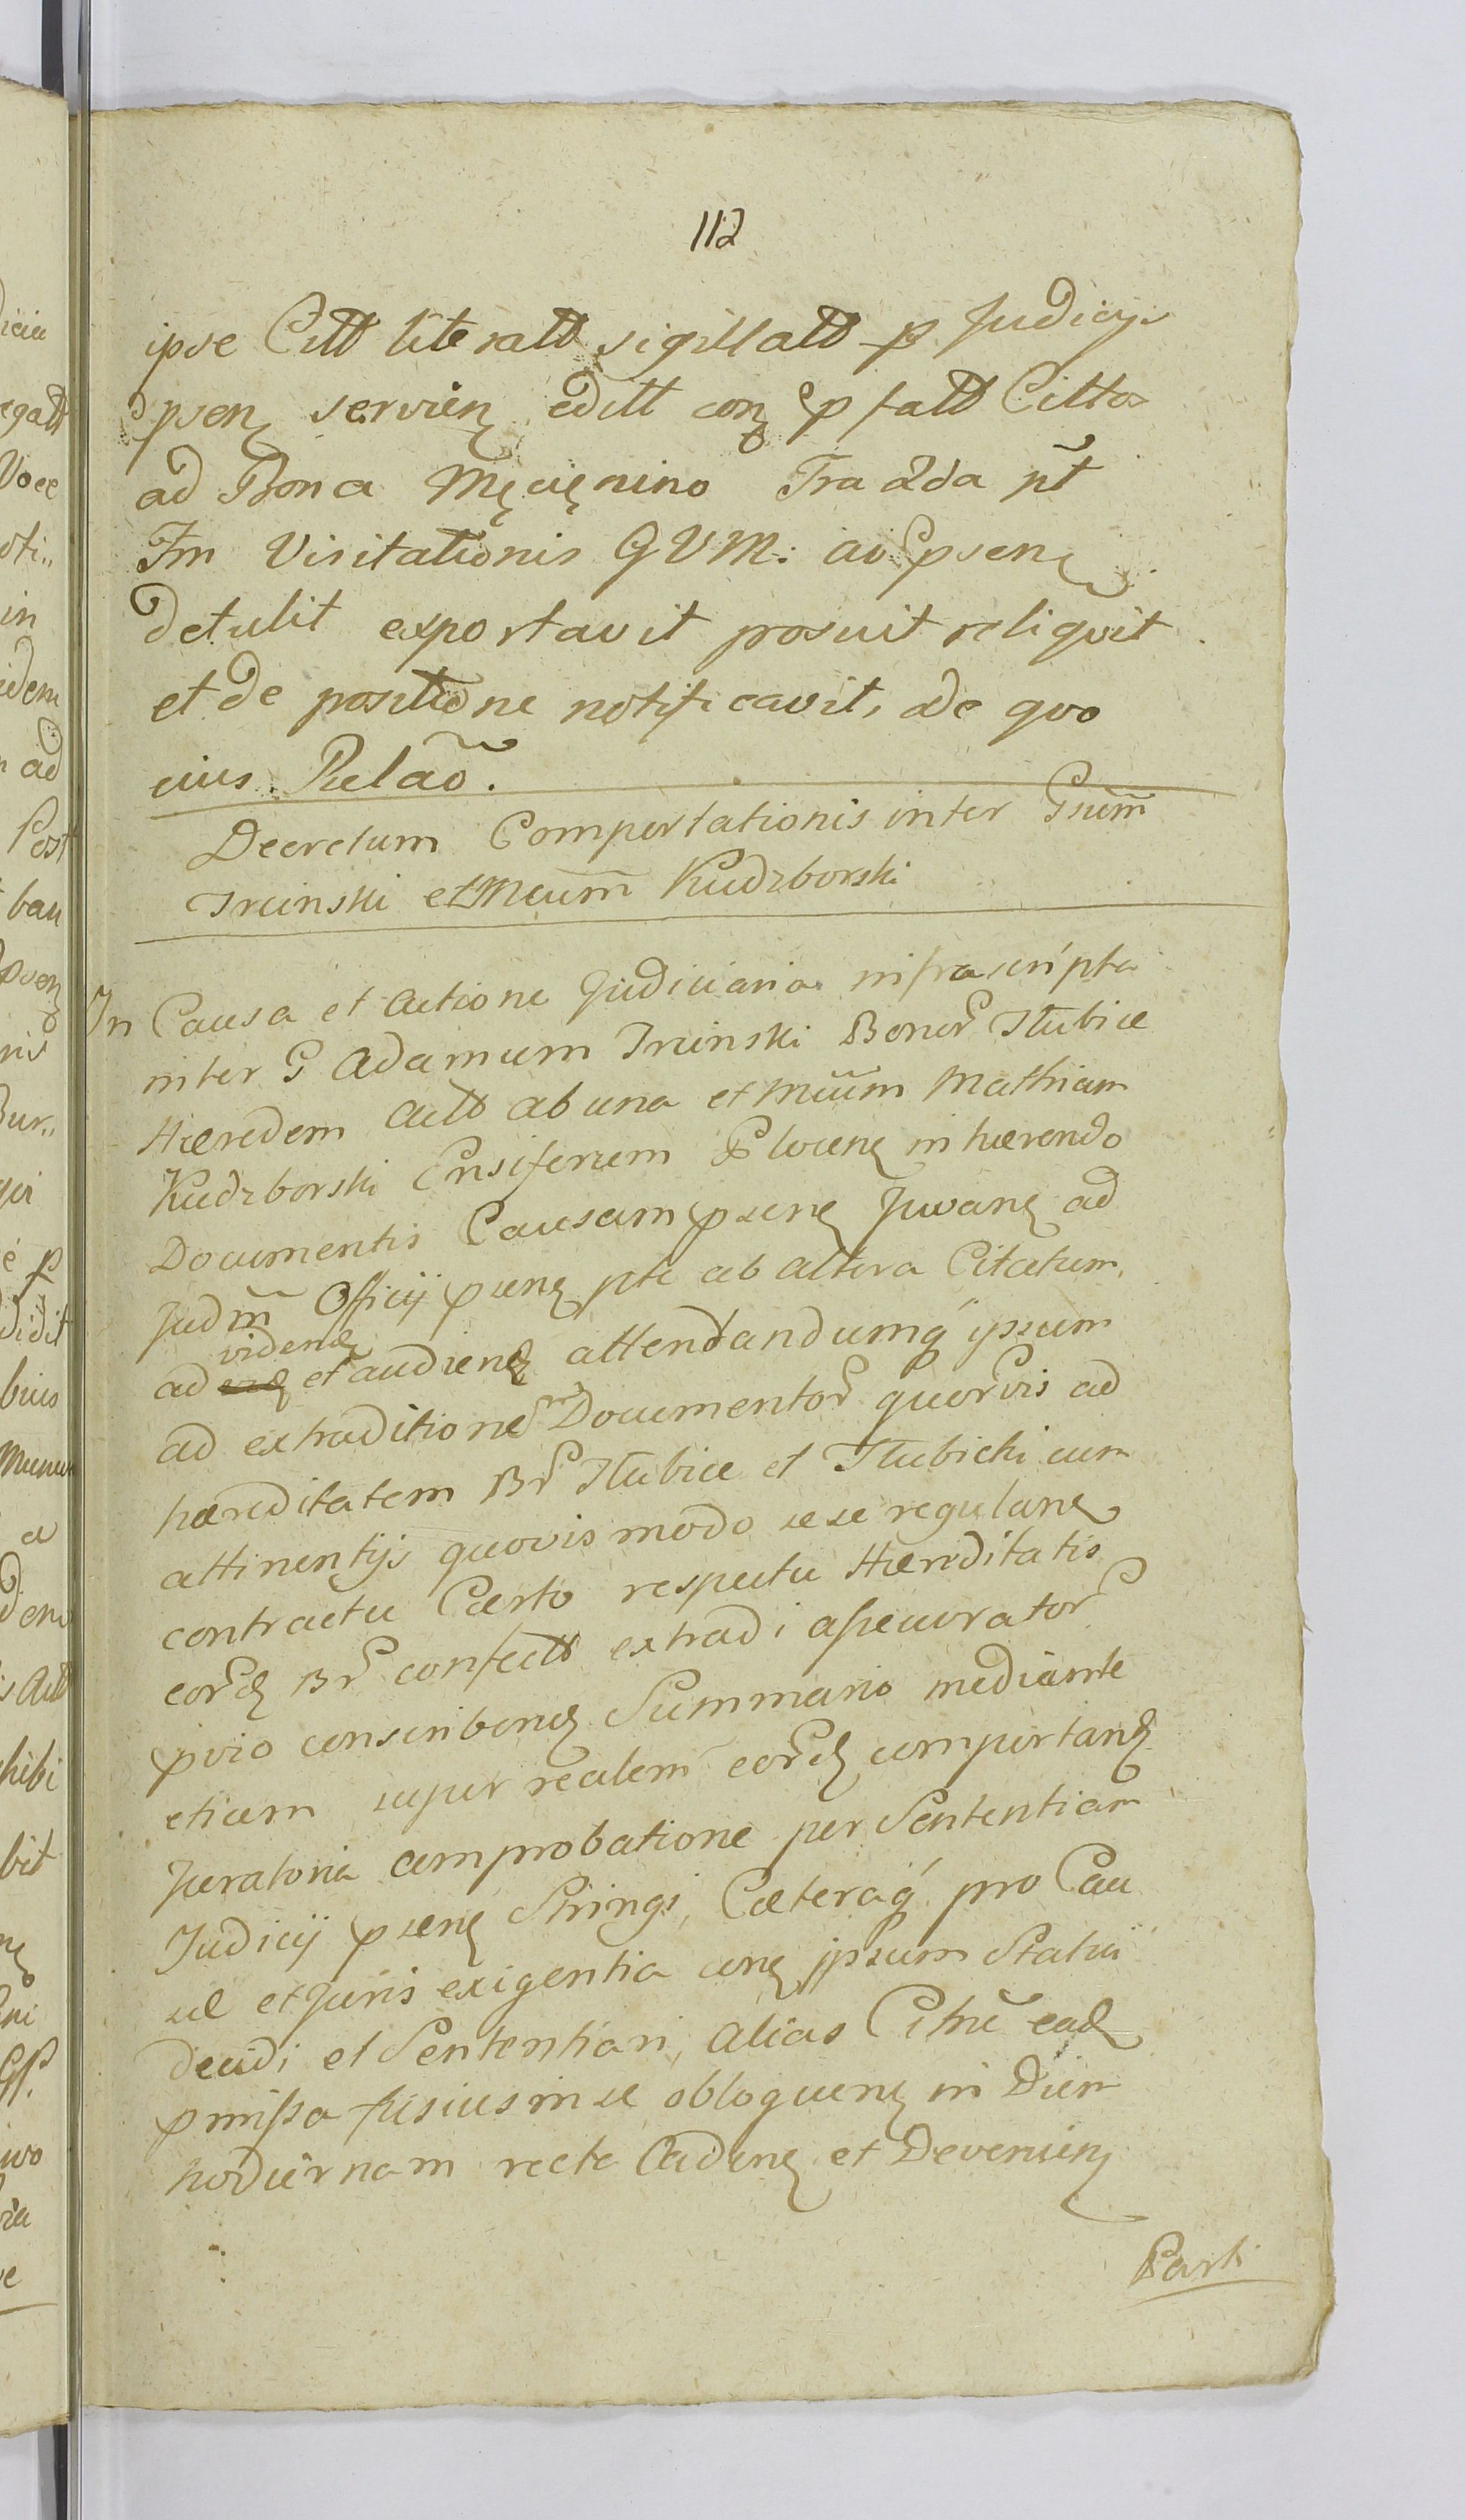 112
ipse Citt literatt sigillatt p Judicijs
psen servien editt con p fatt Cittos
ad Bona Męcięnino Fra 2da pt
Im Visitationis GVM: ad psen
detulit exportavit posuit reliqvit
et de positione notificavit, de qvo
eius Relaõ.
Decretum Comportationis inter Gsum̃
Srcinski et Mcum̃ Kudzborski
In Causa et Actione Judiciaria infrascripta
inter G Adamum Srcinski Bonor Słubice
Hæredem Actt ab una et Mcum̃ Mathiam
Kudzborski Ensiferum Plocen in hærendo
Documentis Causam psen Juvan ad
Judm̃ Officij psen pte ab altera Citatum,
viden
ad et audien attentandumq ipsum
ad extraditionem Documentor quorvis ad
hæreditatem Br Słubice et Słubicki cum
attinentijs quovis modo sese regulan
contractu Certo respectu Hæreditatis
eord Br confectt extradi assecurator
pvio conscriben Summario mediante
etiam super realem eord comportand
Juratoria comprobatione per Sententiam
Judicij psen Stringi, Cæteraq pro Cau
sæ et Juris exigentia con ipsum Statui
decidi et Sententiari, alias Citñe ead
pmissa fusius in se obloquen in Diem
hodiernam recte Caden et Devenien
Parti